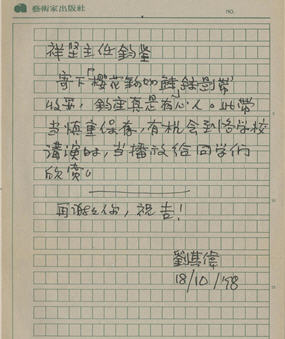 藝術家出版社
NO.
祥堅主任鈞鑒
寄下「櫻花鉤吻鮭」錄影帶
收，鈞座真是有心人。此帶
当慎重保存，有机会到各学校
講演時，当播放給同学们
欣賞。
再謝你，祝吉！
劉其偉
18/10/'98